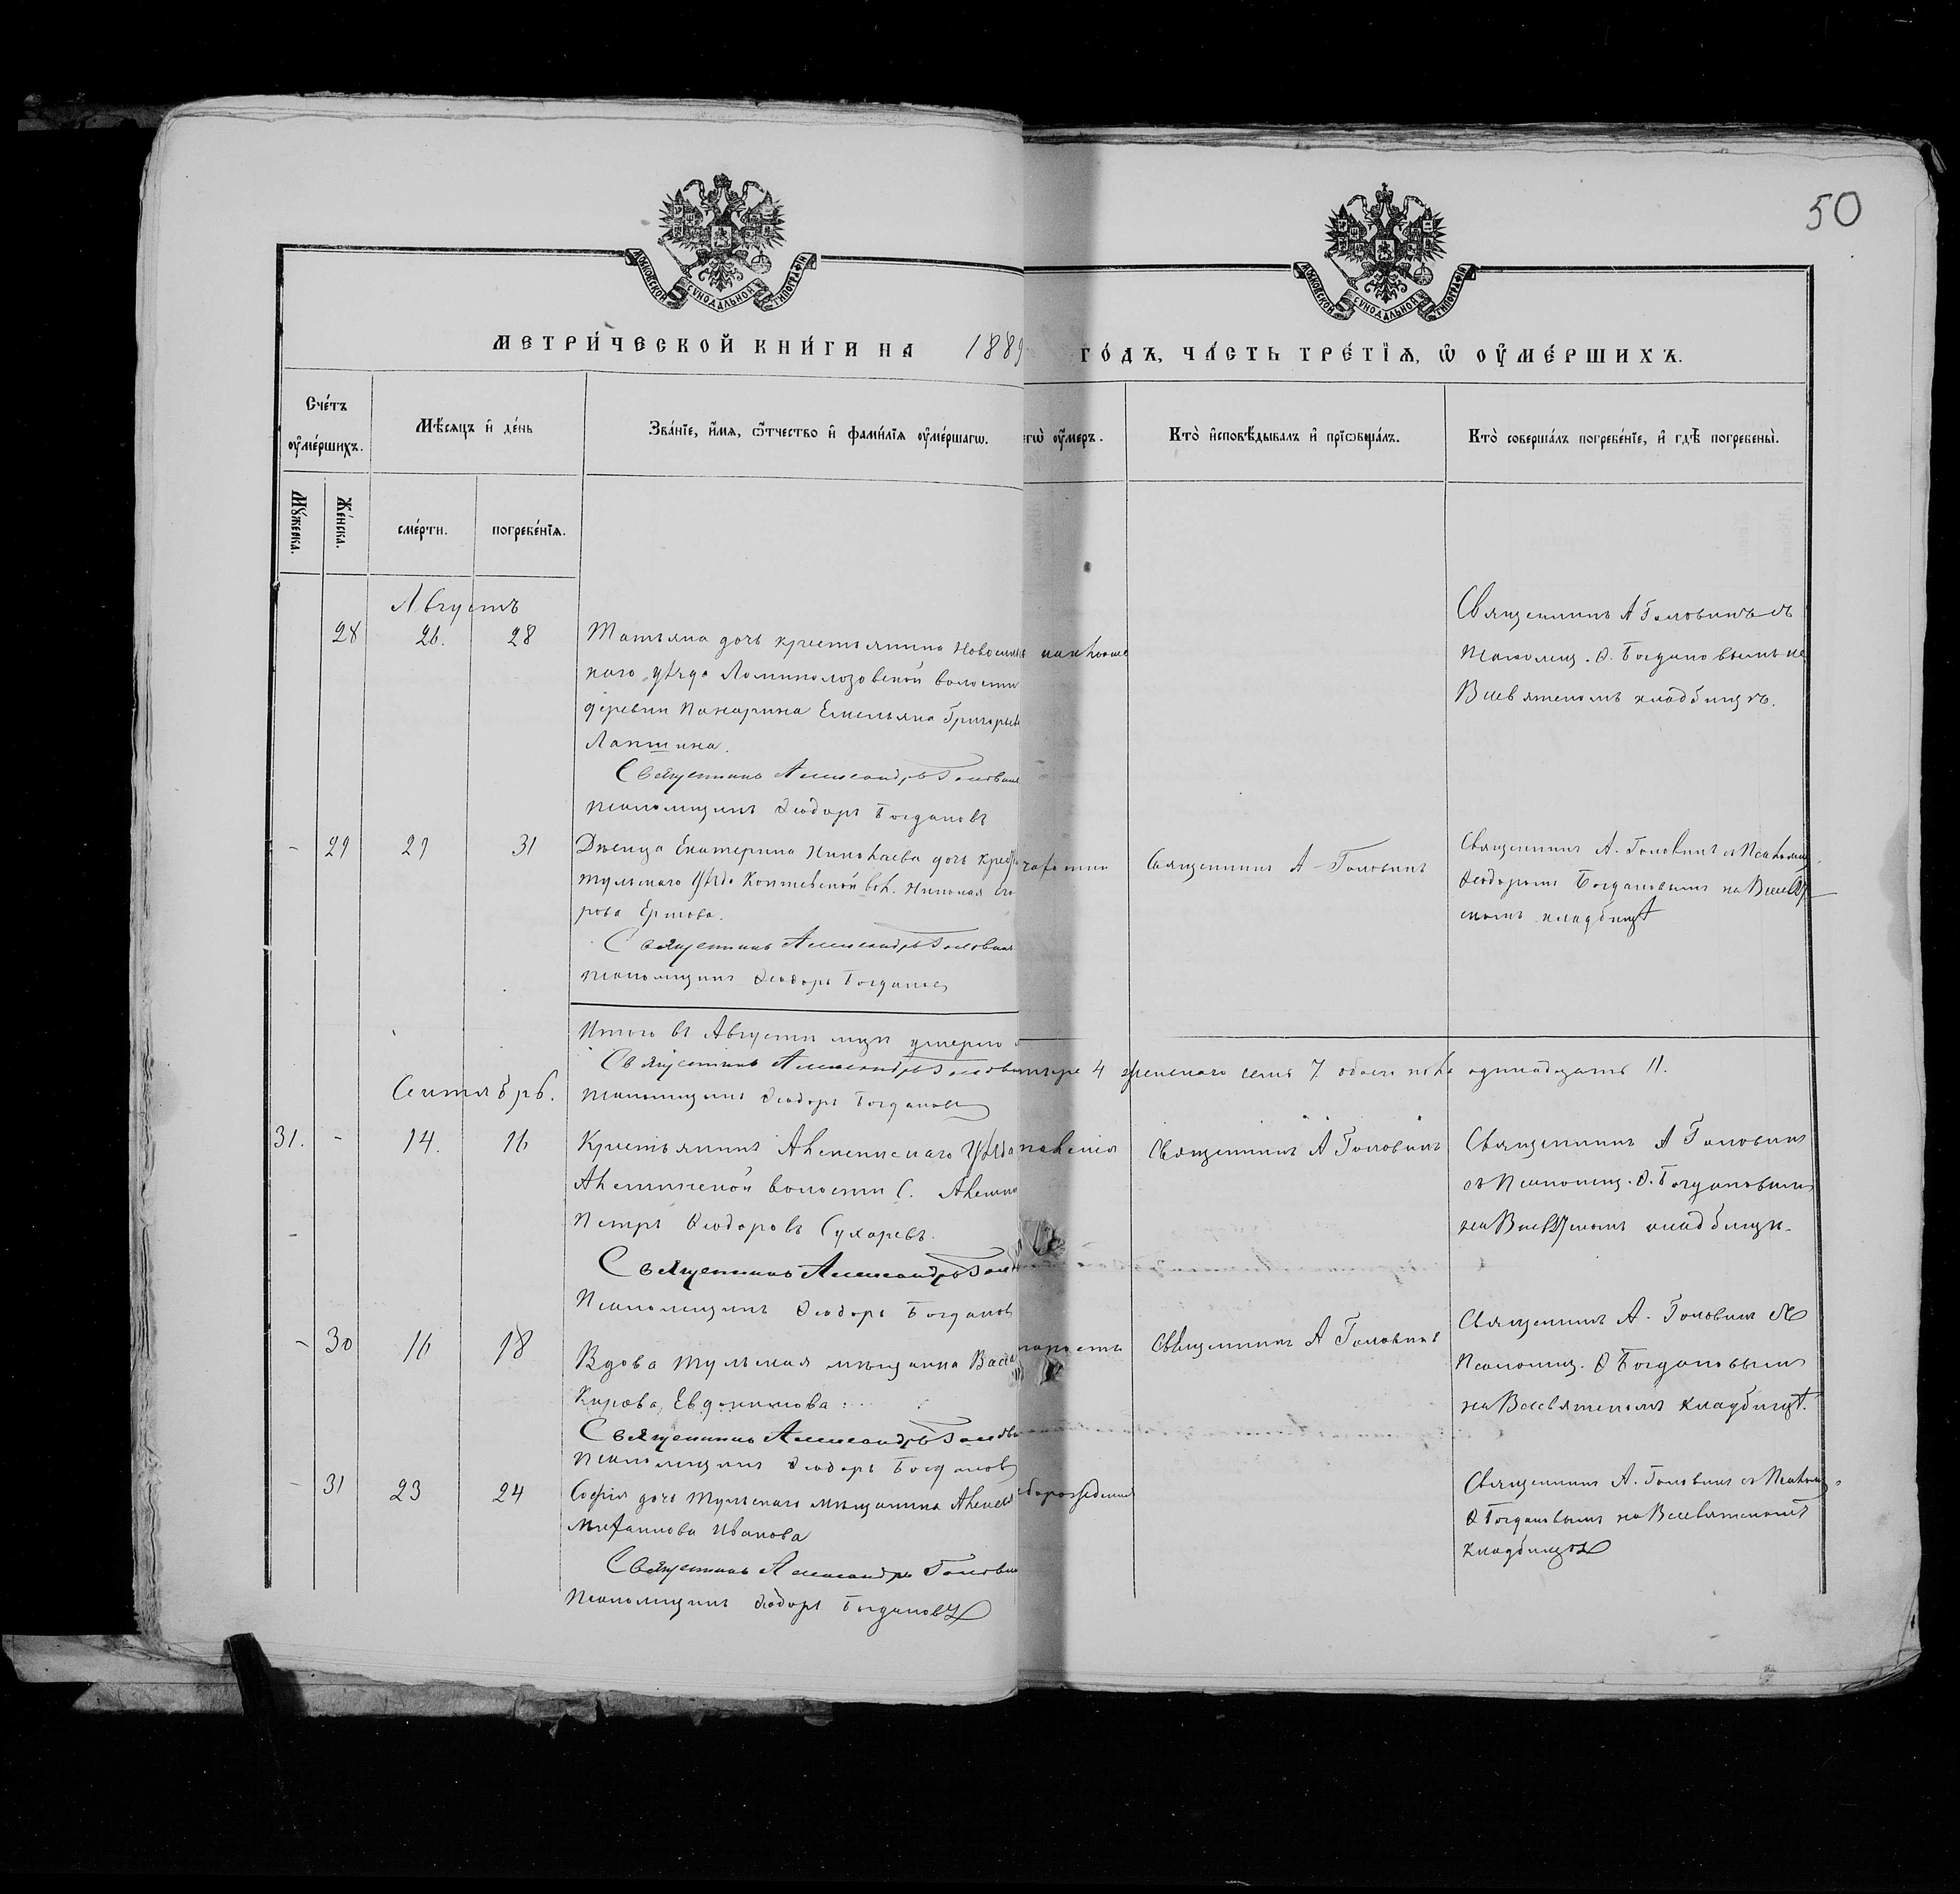 50
МОСКОВСКОЙ СѴНОДАЛЬНОЙ ТИПОГРАФІИ
МОСКОВСКОЙ СѴНОДАЛЬНОЙ ТИПОГРАФІИ
МЕТРИ́ЧЕСКОЙ КНИ́ГИ НА 1889
ГО́ДЪ, ЧА́СТЬ ТРЕ́ТЇѦ, Ѡ҆ ОУ҆МЕ́РШИХЪ.
Сче́тъ оу҆ме́ршихъ.
Мѣ́сяцъ и҆ де́нь
Зва́нїе, и҆́мѧ, ѻ҆́тчество и҆ фами́лїѧ оу҆ме́ршагѡ.
егѡ̀ оу҆́меръ.
Кто̀ и҆сповѣ́дывалъ и҆ прїѡбща́лъ.
Кто̀ соверша́лъ погребе́нїе, и҆ гдѣ̀ погребены̀.
Мꙋ́жеска.
Же́нска.
сме́рти.
погребе́нїѧ.
Августъ
28 26. 28
Татьяна дочь крестьянина Новосиль
каго уѣзда Ломиполозовской волости
деревни Пажарина Емельяна Григорьев
Лапшина.
Священникъ Александръ Головин
псаломщикъ Ѳеодоръ Богдановъ
Священникъ А Головинъ съ
Псаломщ. Ѳ. Богдановымъ на
Всевятскомъ кладбищѣ.
- 29 29 31
Дѣвица Екатерина Николаева дочь крес
тульскаго Уѣзда вол. Николая Его
рова Ершова.
Священникъ Александръ Головин
псаломщикъ Ѳеодоръ Богданов
чахотки
Священникъ А Головинъ
Священникъ А. Головинъ съ Псаломщ.
Ѳеодоромъ Богдановымъ на
скомъ кладбищѣ
Итого въ Августѣ мцѣ умерло
тыре 4 женскаго семь 7 обоего пола одинадцать 11.
Священникъ Александръ Голови
псаломщикъ Ѳеодоръ Богданов
Сентябрь.
31. - 14. 16
Крестьянинъ Алексинскаго Уѣзда
волости С.
Петръ Ѳеодоровъ Сухаревъ.
Священникъ Александръ Гол
Псаломщикъ Ѳеодоръ Богданов
Священникъ А Головинъ
Священникъ А Головинъ
съ Псаломщ. Ѳ. Богдановымъ
на кладбищѣ.
- 30 16 18
Вдова тульская мѣщанка Васса
Кирова Евдокимова
Священникъ Александръ Голов
Псаломщикъ Ѳеодоръ Богданов
тарость
Священникъ А Головинъ
Священникъ А. Головинъ съ
Псаломщ. Ѳ Богдановымъ
на Всевятскомъ кладбищѣ.
- 31 23 24
Софія дочь тульскаго мѣщанина Алексѣя
Митрофанова Иванова
Священникъ Александръ Голови
Псаломщикъ Ѳеодоръ Богдановъ
борожденія
Священникъ А. Головинъ съ Псаломщ.
Ѳ Богдановымъ на Всевятскомъ
кладбищѣ